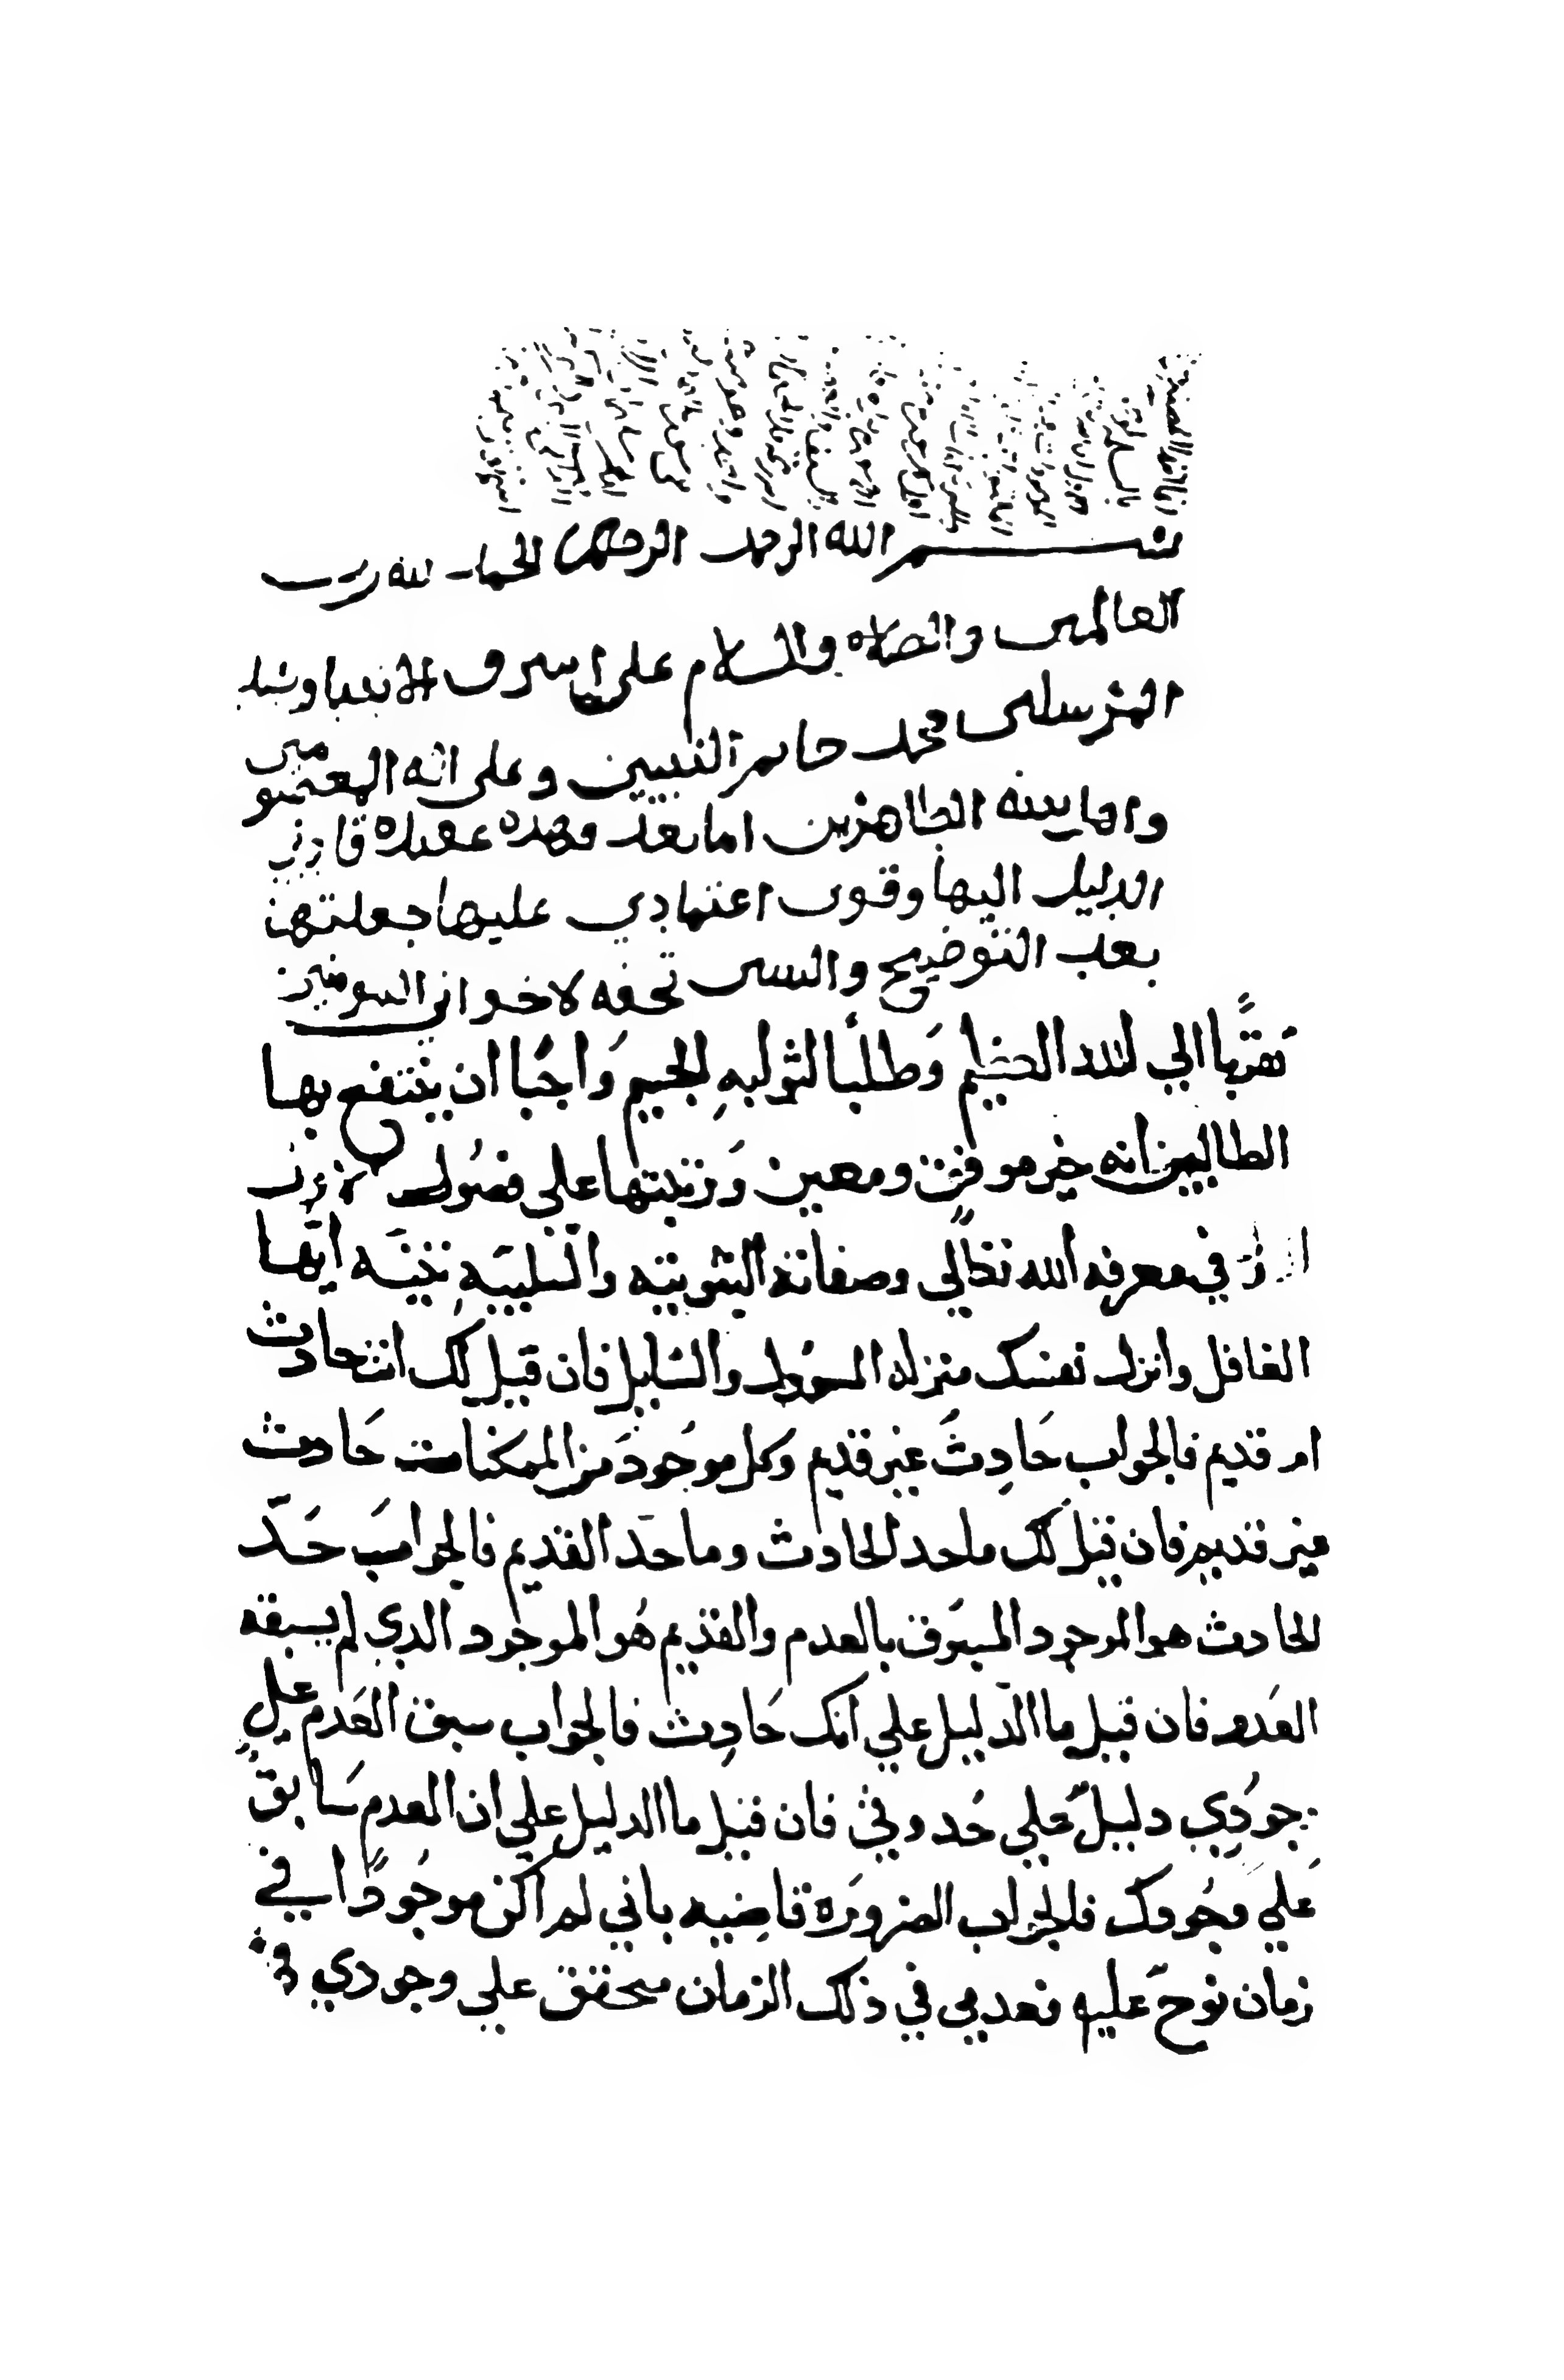 بسم الله الرحمن الرحيم الحمد لله رب
العالمين والصلاه والسلام على اشرف الانبيا وسيد
المرسلين محمد خاتم النبيين وعلى اله المعصومين
واهل بيته الطاهرين اما بعد فهذه عقيدة قادني
الدليل اليها وقوى اعتمادي عليها جعلتها
بعد التوضيح والتبيين تحفه لاخواني المومنين
تقربا الي الله العظيم وطلبا لثوابه الجسيم واجبا ان ينتفع بها
الطالبين انه خير موفق ومعين ورتبتها على فصول
في معرفه الله تعالي وصفاته الثبوتيه والسلبيه تنبه ايها
الغافل وانزل نفسك منزله المسؤل والسايل فان قيل لك انت حادث
ام قديم فالجواب حادث غير قديم وكل موجود من الممكنات حادث
غير قديم فان قيل لك ما حد الحادث وما حد القديم فالجواب حد
الحادث هو الموجود المسبوق بالعدم والقديم هو الموجود الذي لم يسبقه
العدم فان قيل ما الدليل علي انك حادث فالجواب سبق العدم علي
وجودي دليل علي حدوثي فان قيل ما الدليل علي ان العدم سابق
علي وجودك فالجواب الضروره قاضيه باني لم اكن موجودا في
زمان نوح عليه فعدمي في ذلك الزمان متحقق علي وجودي في